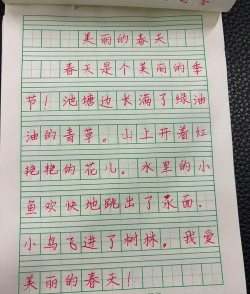 美丽的春天
春天是个美丽的季
节！池塘边长满了绿油
油的青草。山上开着红
艳艳的花儿。水里的小
鱼欢快地跳出了水面。
小鸟飞进了树林。我爱
美丽的春天！